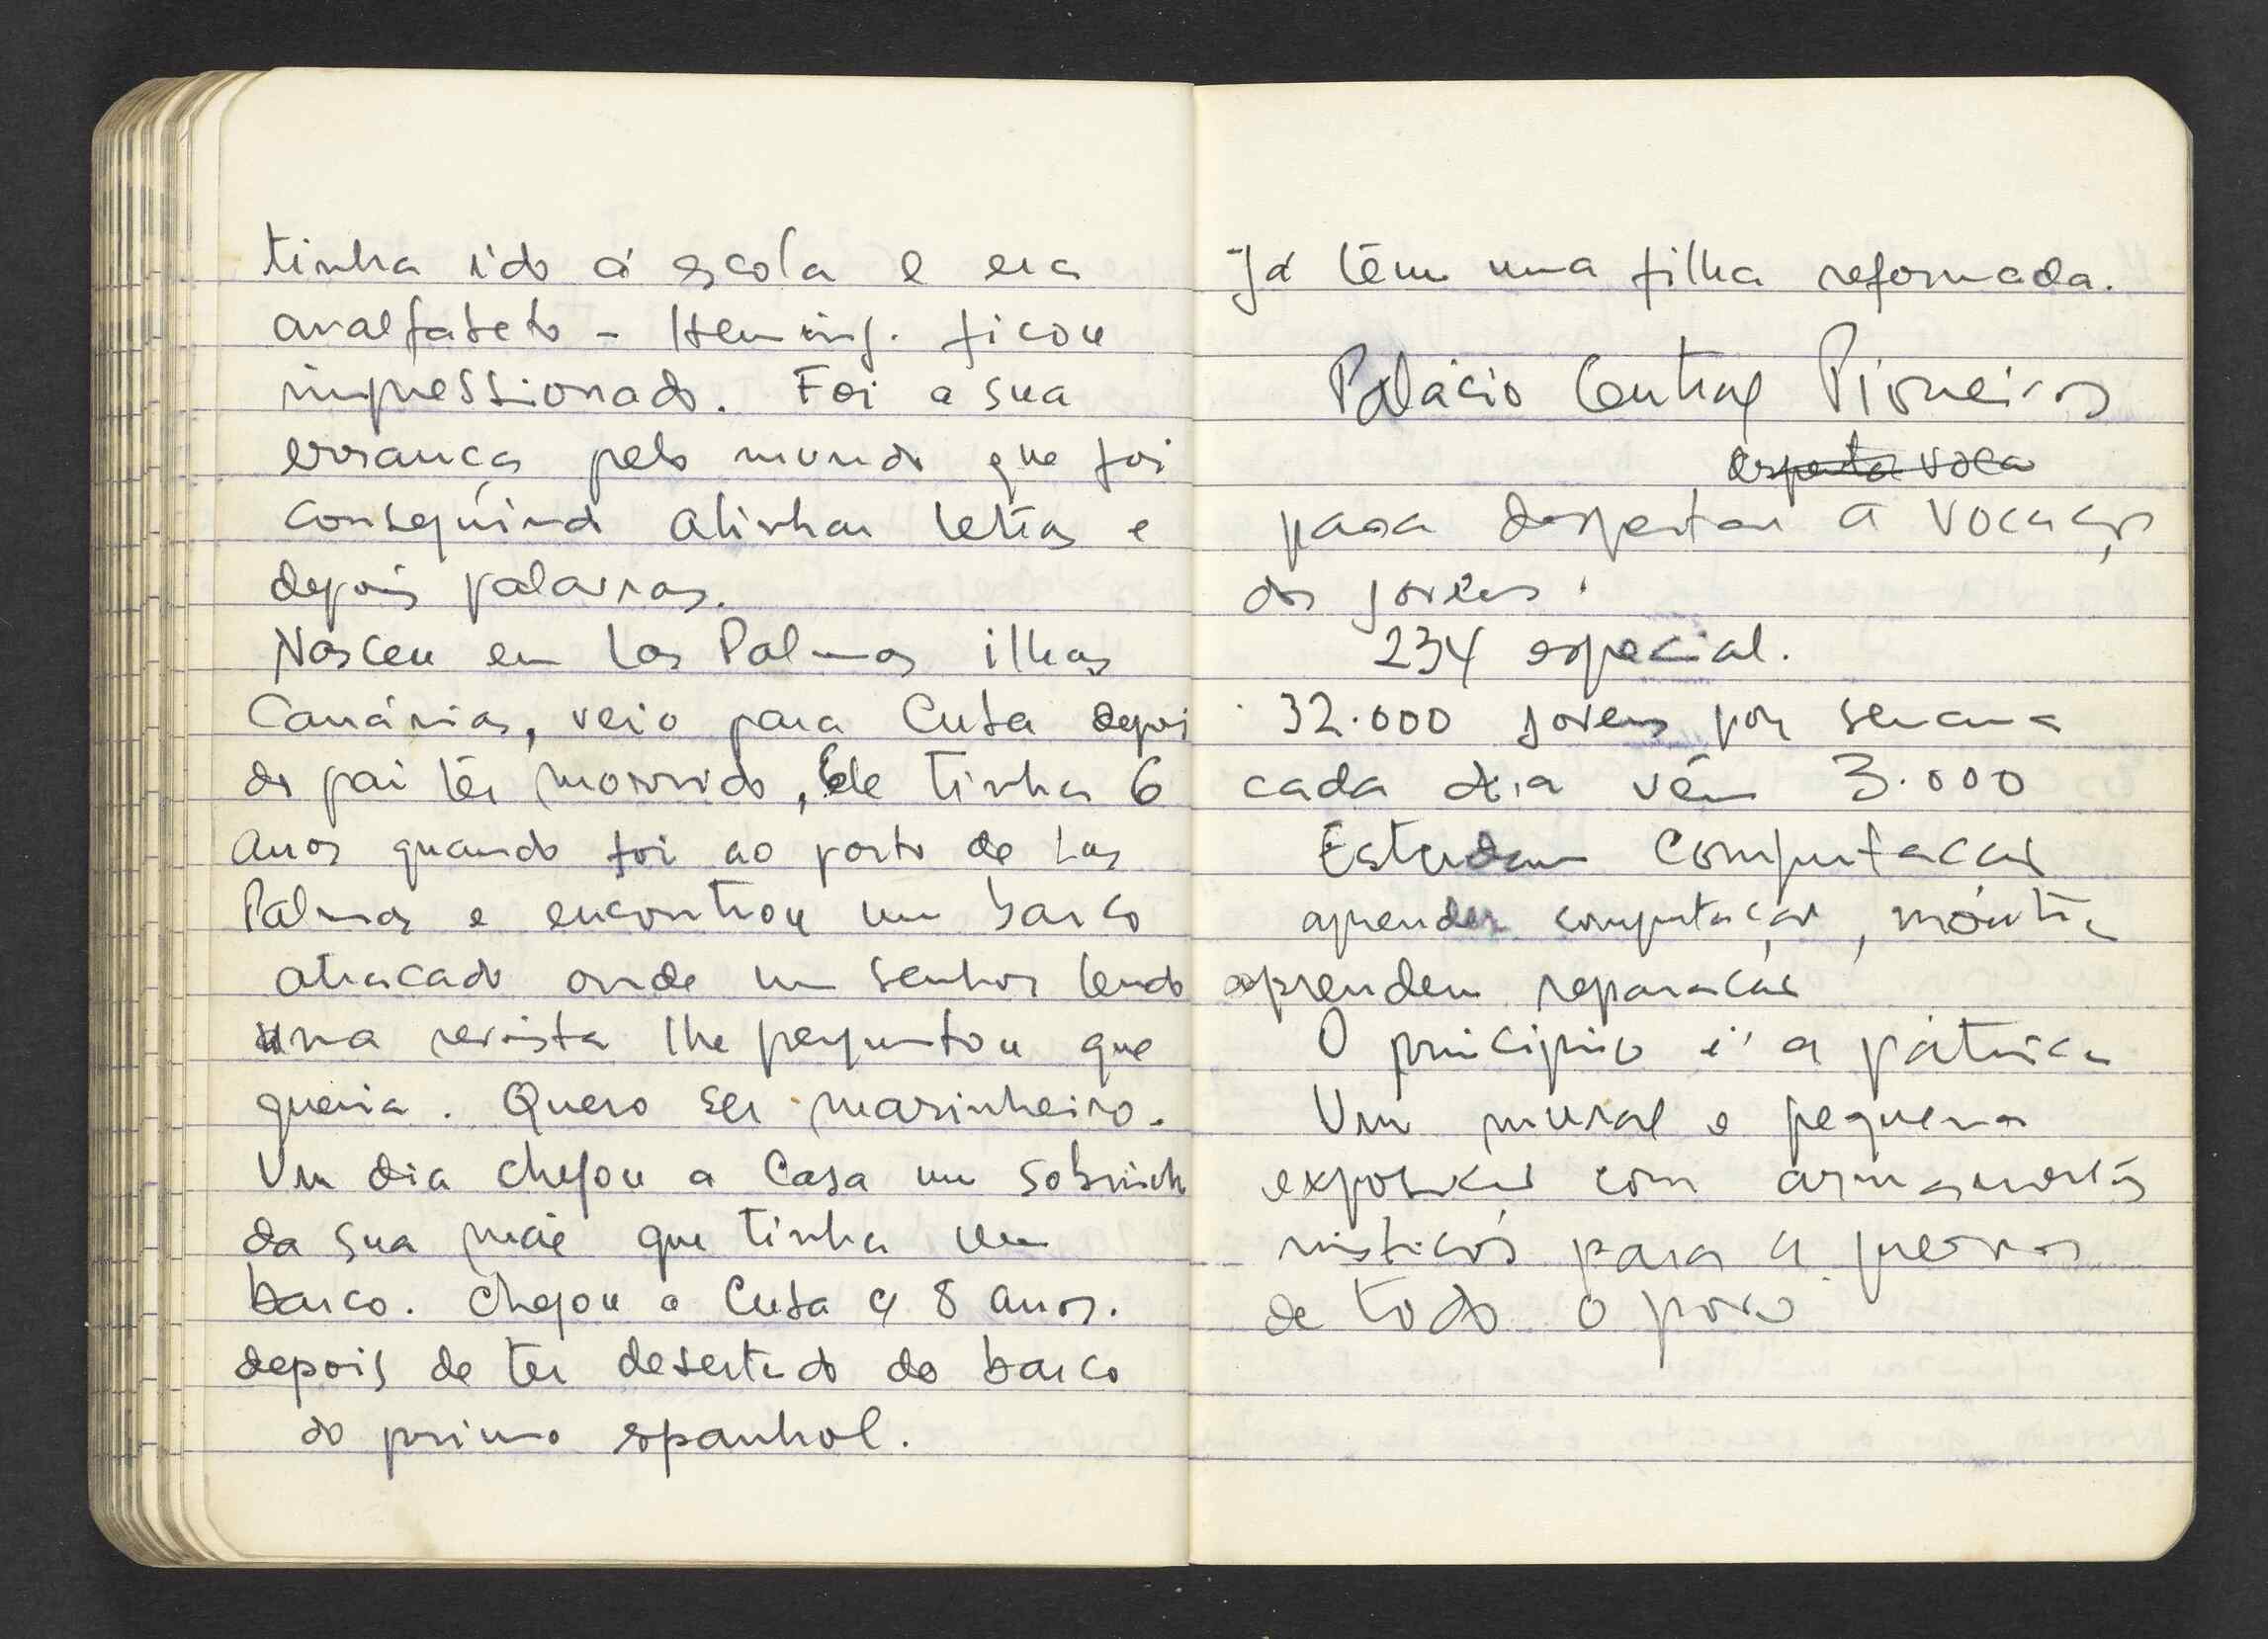 tinha ido á escola e era
analfabeto - Heming. ficou
impressionado. Foi a sua
errança pelo mundo que foi
conseguindo alinhar letras e
depois palavras.
Nasceu em Las Palmas ilhas
Canárias, veio para Cuba depoi
do pai ter morrido, ele tinha 6
anos quando foi ao porto de Las
Palmas e encontrou um barco
atracado onde um senhor lendo
uma revista lhe perguntou que
queria. Quero ser marinheiro.
Um dia chegou a Casa um sobrinh
da sua mãe que tinha um
barco. Chegou a Cuba c/ 8 anos.
depois de ter desertado do barco
do primo espanhol.
Já têm uma filha reformada.
Palácio Central Pioneiros
desperta voca
para despertar a vocação
dos jovens.
234 especial.
32.000 jovens por semana
cada dia vêm 3.000
Estudam Computacao
aprender computação,
aprendem reparacão
O principio é a pátria
Um mural e pequena
exposicao com armamentos
rústicos para a guerra
de todo o povo